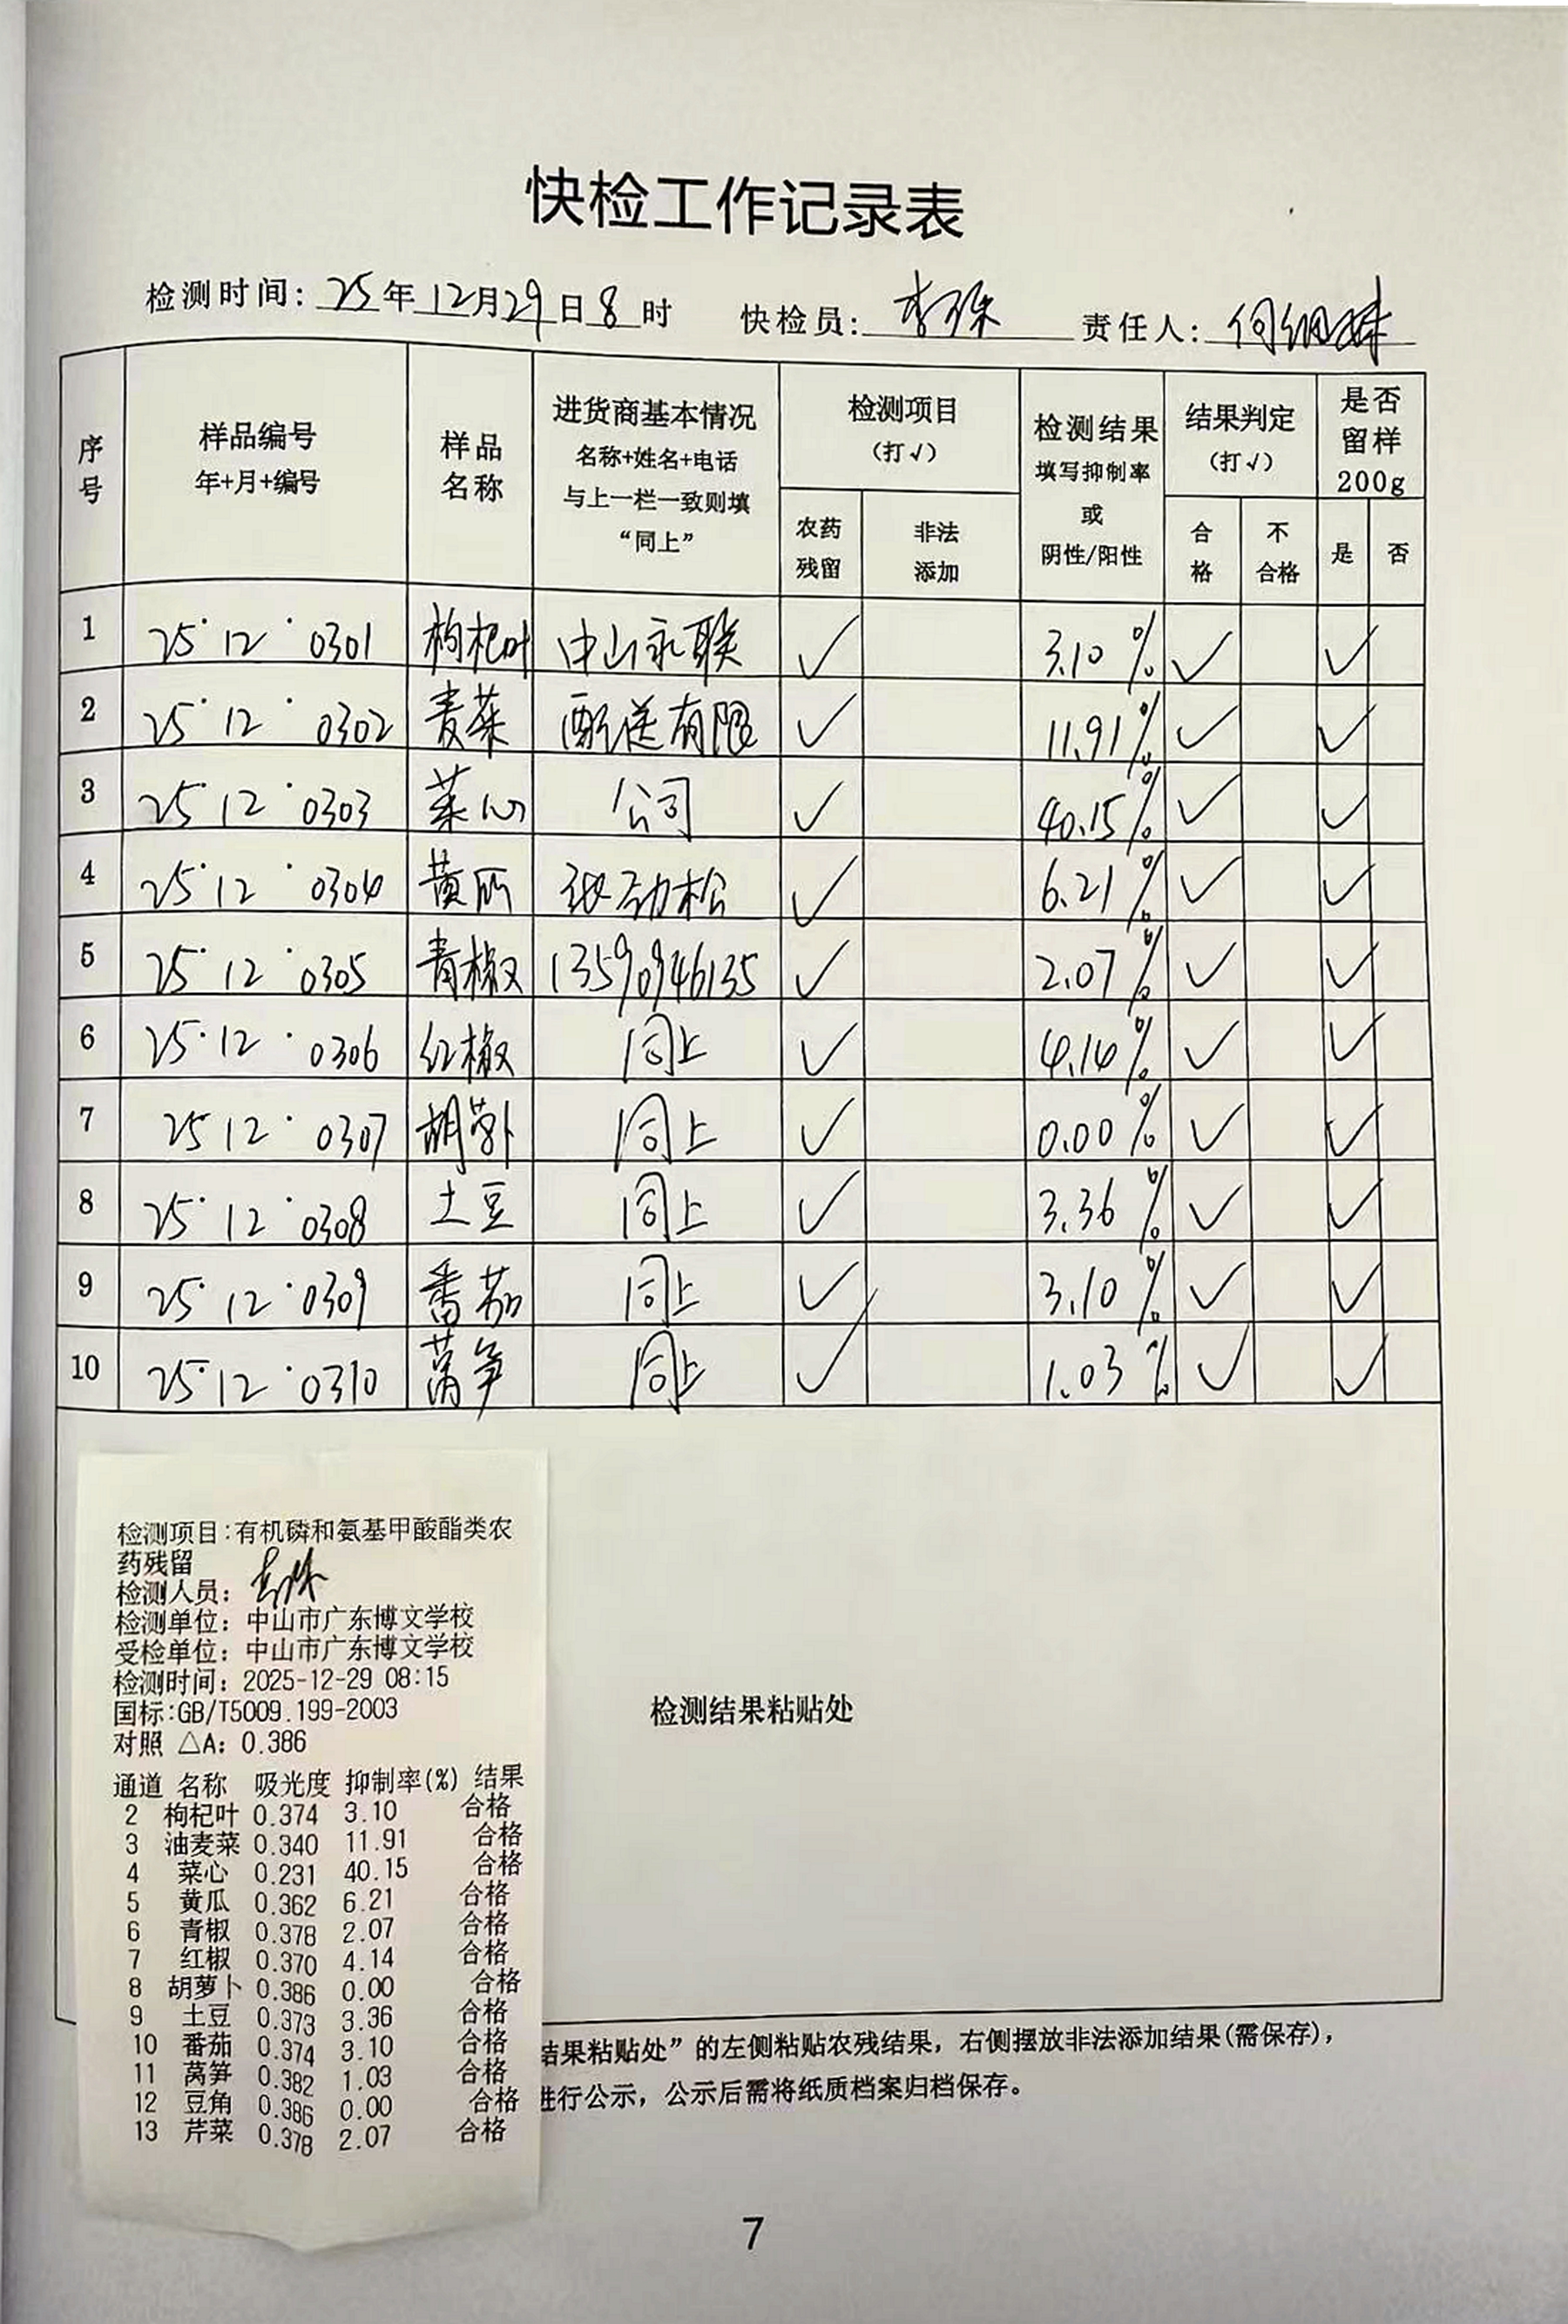 快检工作记录表
检测时间: 25年12月29日8时 快检员: 李 责任人: 何
序号 样品编号 年+月+编号 样品名称 进货商基本情况 名称+姓名+电话 与上一栏一致则填“同上” 检测项目 (打√) 农药残留 非法添加 检测结果 填写抑制率 或 阴性/阳性 结果判定 (打√) 合格 不合格 是否留样200g 是 否
1 25·12·0301 枸杞叶 中山永联 ✓ 3.10% ✓ ✓
2 25·12·0302 麦菜 配送有限 ✓ 11.91% ✓ ✓
3 25·12·0303 菜心 公司 ✓ 40.15% ✓ ✓
4 25·12·0304 黄瓜 劲松 ✓ 6.21% ✓ ✓
5 25·12·0305 青椒 13590946135 ✓ 2.07% ✓ ✓
6 25·12·0306 红椒 同上 ✓ 4.14% ✓ ✓
7 25 12·0307 胡萝卜 同上 ✓ 0.00% ✓ ✓
8 25·12·0308 土豆 同上 ✓ 3.36% ✓ ✓
9 25·12·0309 番茄 同上 ✓ 3.10% ✓ ✓
10 25·12·0310 莴笋 同上 ✓ 1.03% ✓ ✓
检测结果粘贴处
检测项目:有机磷和氨基甲酸酯类农
药残留
检测人员:
检测单位: 中山市广东博文学校
受检单位: 中山市广东博文学校
检测时间: 2025-12-29 08:15
国标:GB/T5009.199-2003
对照 △A: 0.386
通道 名称 吸光度 抑制率(%) 结果
2 枸杞叶 0.374 3.10 合格
3 油麦菜 0.340 11.91 合格
4 菜心 0.231 40.15 合格
5 黄瓜 0.362 6.21 合格
6 青椒 0.378 2.07 合格
7 红椒 0.370 4.14 合格
8 胡萝卜 0.386 0.00 合格
9 土豆 0.373 3.36 合格
10 番茄 0.374 3.10 合格
11 莴笋 0.382 1.03 合格
12 豆角 0.386 0.00 合格
13 芹菜 0.378 2.07 合格
结果粘贴处”的左侧粘贴农残结果，右侧摆放非法添加结果(需保存)，
进行公示，公示后需将纸质档案归档保存。
7